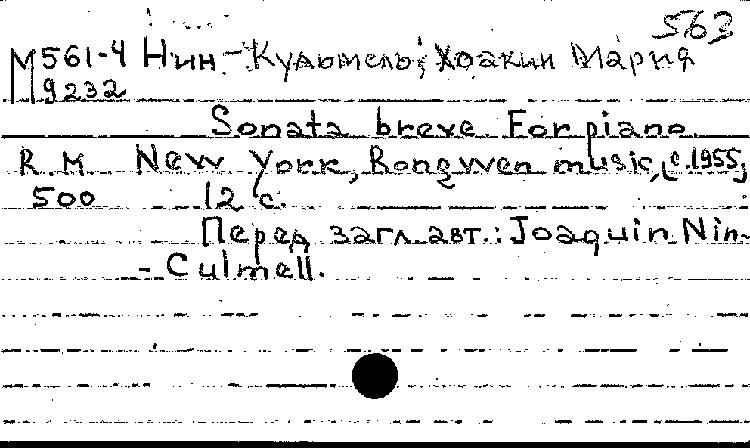 563
М561-4 Нин-Кульмель, Хоакин Мария
9232
Sonata breve. For piano.
R. M New York, Rongwen music, [c. 1955]
500 12 с.
Перед загл. авт.: Joaquin Nin-
-Culmell.